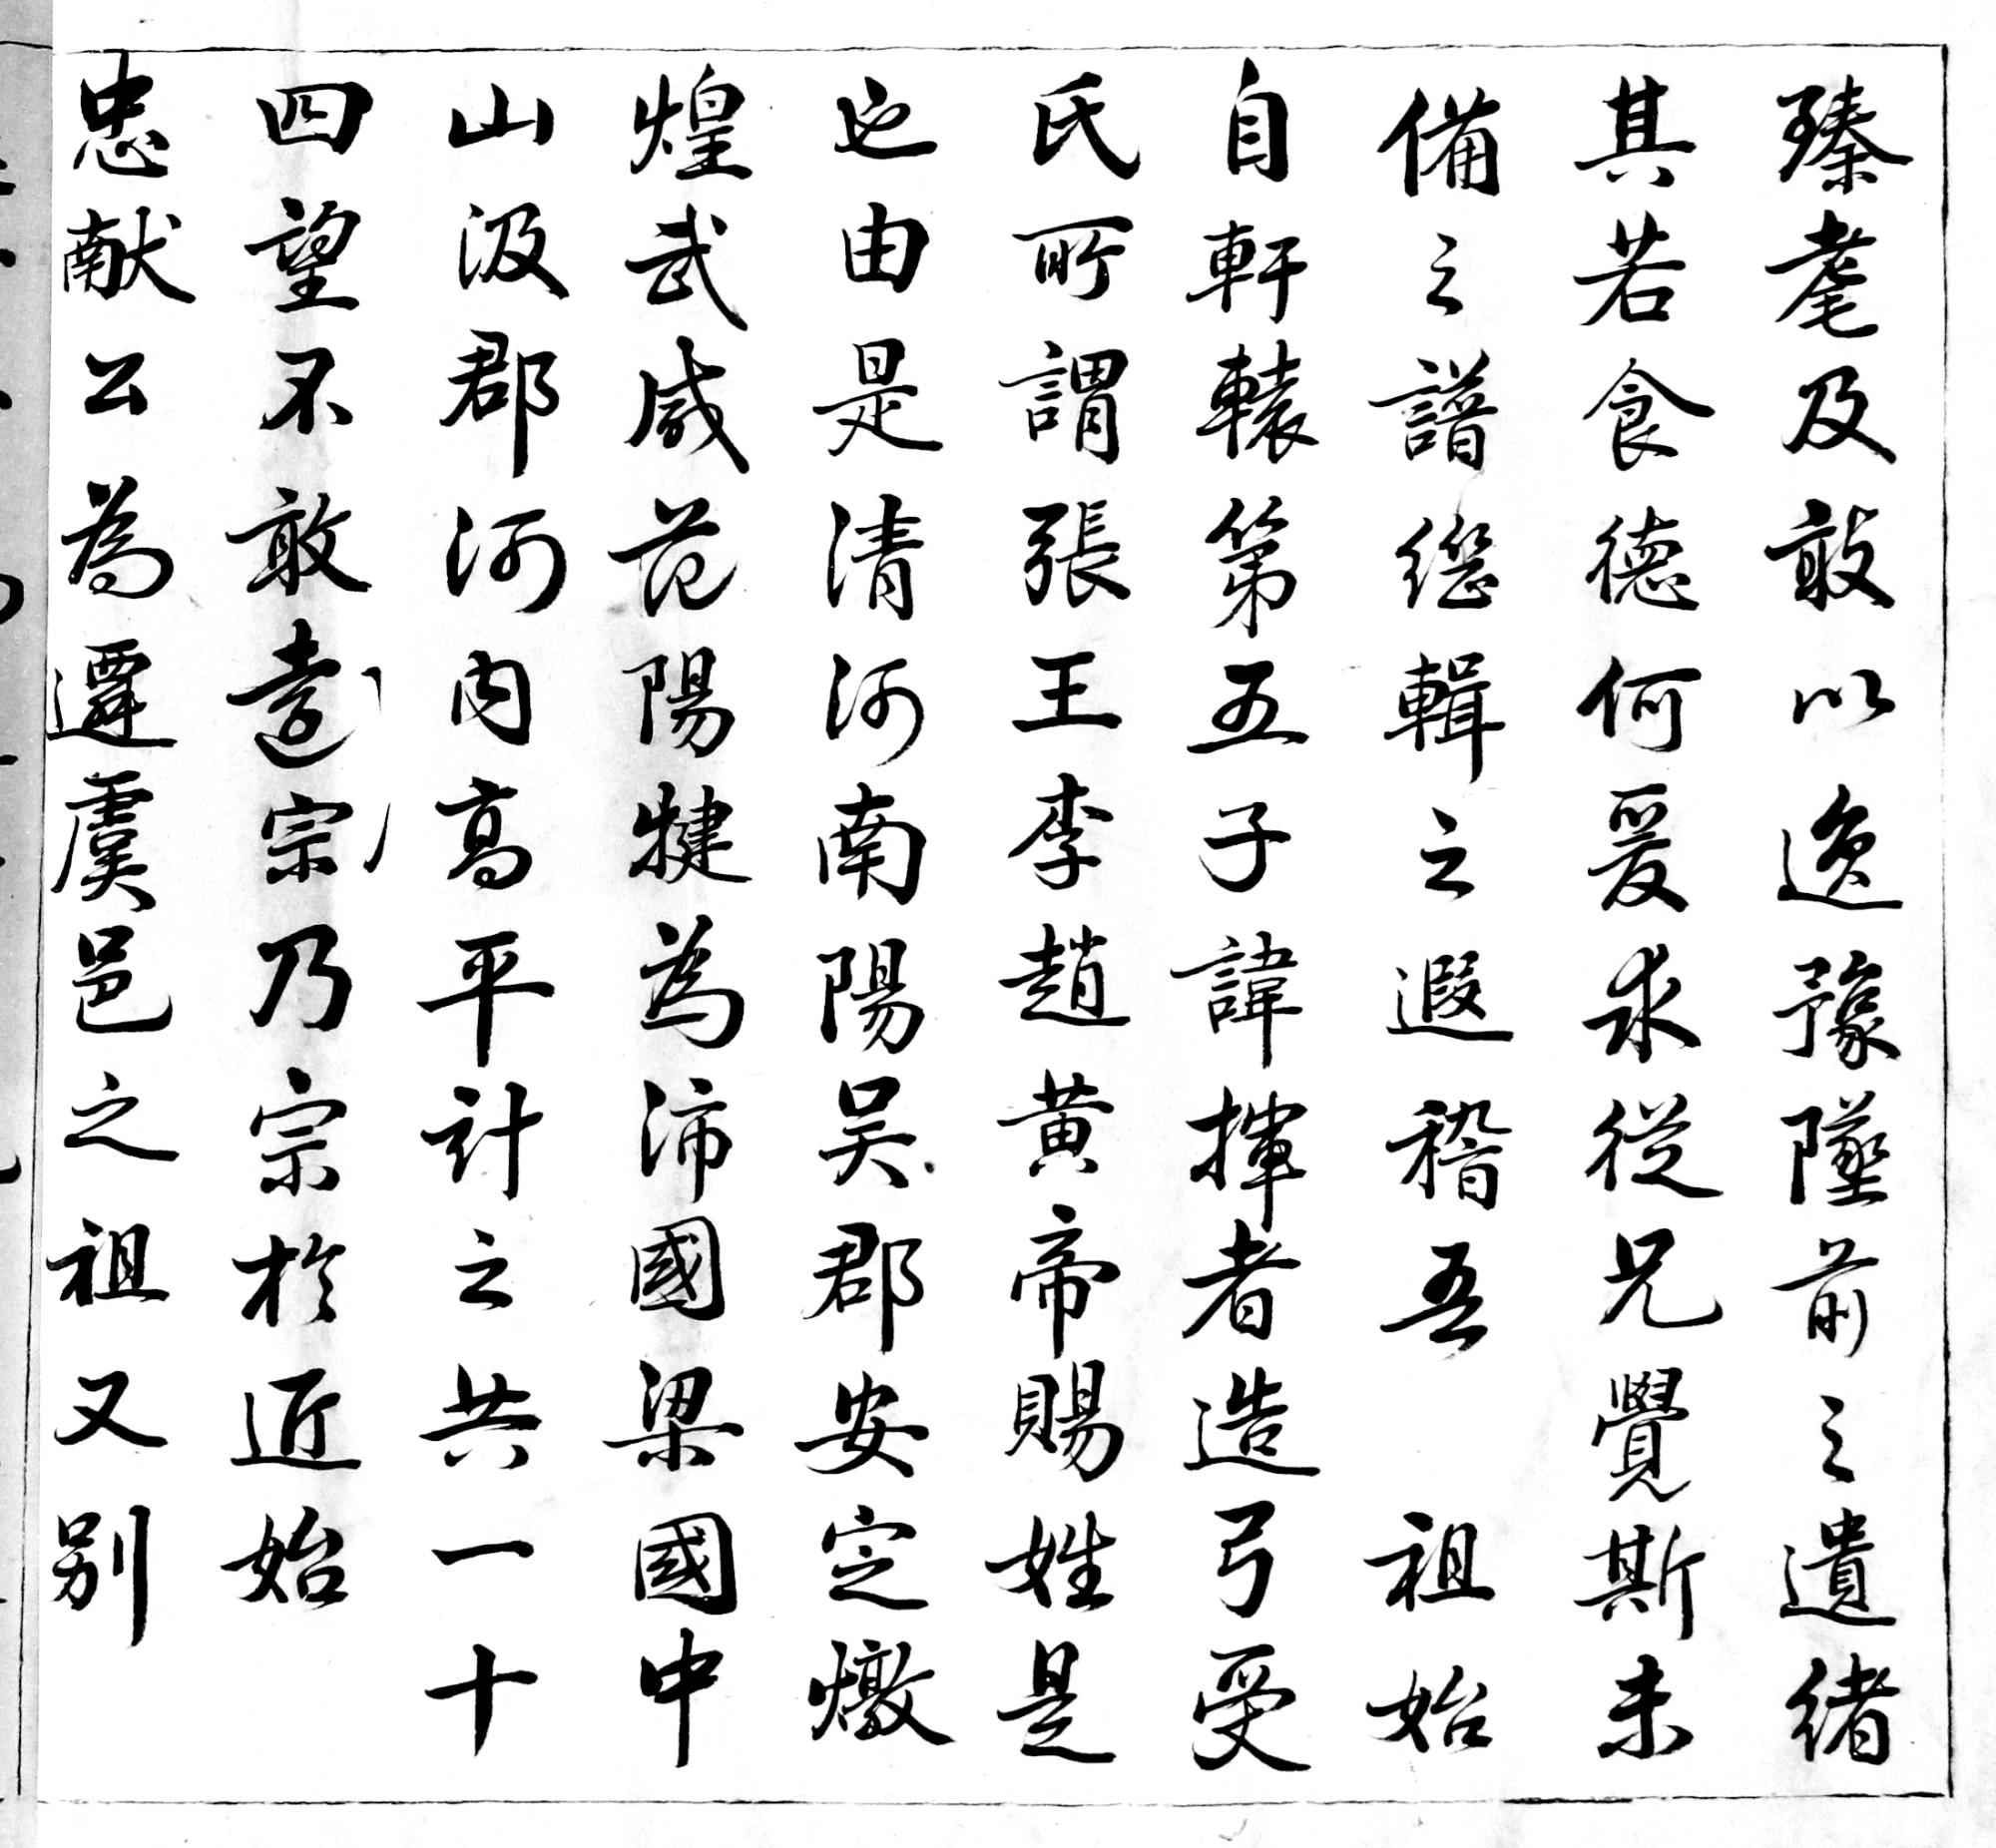 臻耄及敢以逸豫墜前之遺緒
其若食德何爰求從兄覺斯未
備之譜緫輯之遐稽吾祖始
自軒轅第五子諱揮者造弓受
氏所謂張王李趙黃帝賜姓是
也由是清河南陽吳郡安定燉
煌武威范陽犍為沛國梁國中
山汲郡河內高平計之共一十
四望不敢遠宗乃宗於近始
忠献公為遷虞邑之祖又別